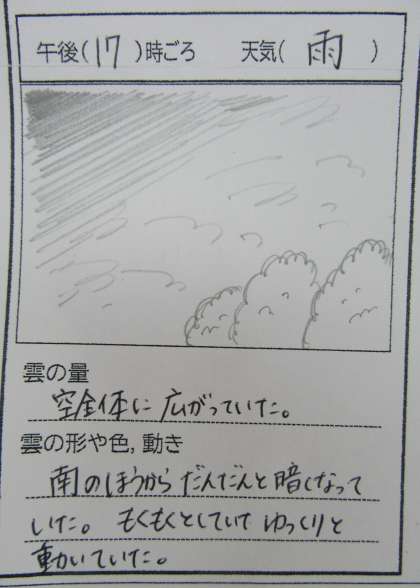 午後(17)時ごろ 天気(雨)
雲の量
空全体に広がっていた。
雲の形や色,動き
南のほうからだんだんと暗くなって
いた。もくもくとしていてゆっくりと
動いていた。